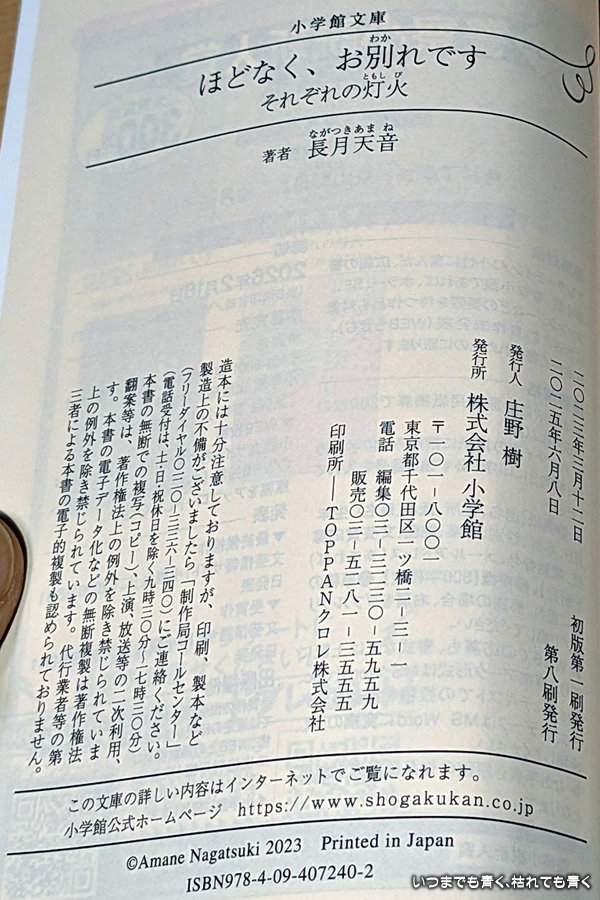 小学館文庫
ほどなく、お別れです
それぞれの灯火
著者 長月天音
二〇二三年三月十二日 初版第一刷発行
二〇二五年六月八日 第八刷発行
発行人 庄野 樹
発行所 株式会社 小学館
〒一〇一-八〇〇一
東京都千代田区一ツ橋二-三-一
電話 編集〇三-三二三〇-五九五九
販売〇三-五二八一-三五五五
印刷所――TOPPANクロレ株式会社
造本には十分注意しておりますが、印刷、製本など
製造上の不備がございましたら「制作局コールセンター」
(フリーダイヤル〇一二〇-三三六-三四〇)にご連絡ください。
(電話受付は、土・日・祝休日を除く九時三〇分~一七時三〇分)
本書の無断での複写(コピー)、上演、放送等の二次利用、
翻案等は、著作権法上の例外を除き禁じられていま
す。本書の電子データ化などの無断複製は著作権法
上の例外を除き禁じられています。代行業者等の第
三者による本書の電子的複製も認められておりません。
この文庫の詳しい内容はインターネットでご覧になれます。
小学館公式ホームページ https://www.shogakukan.co.jp
©Amane Nagatsuki 2023 Printed in Japan
ISBN978-4-09-407240-2
いつまでも青く、枯れても青く